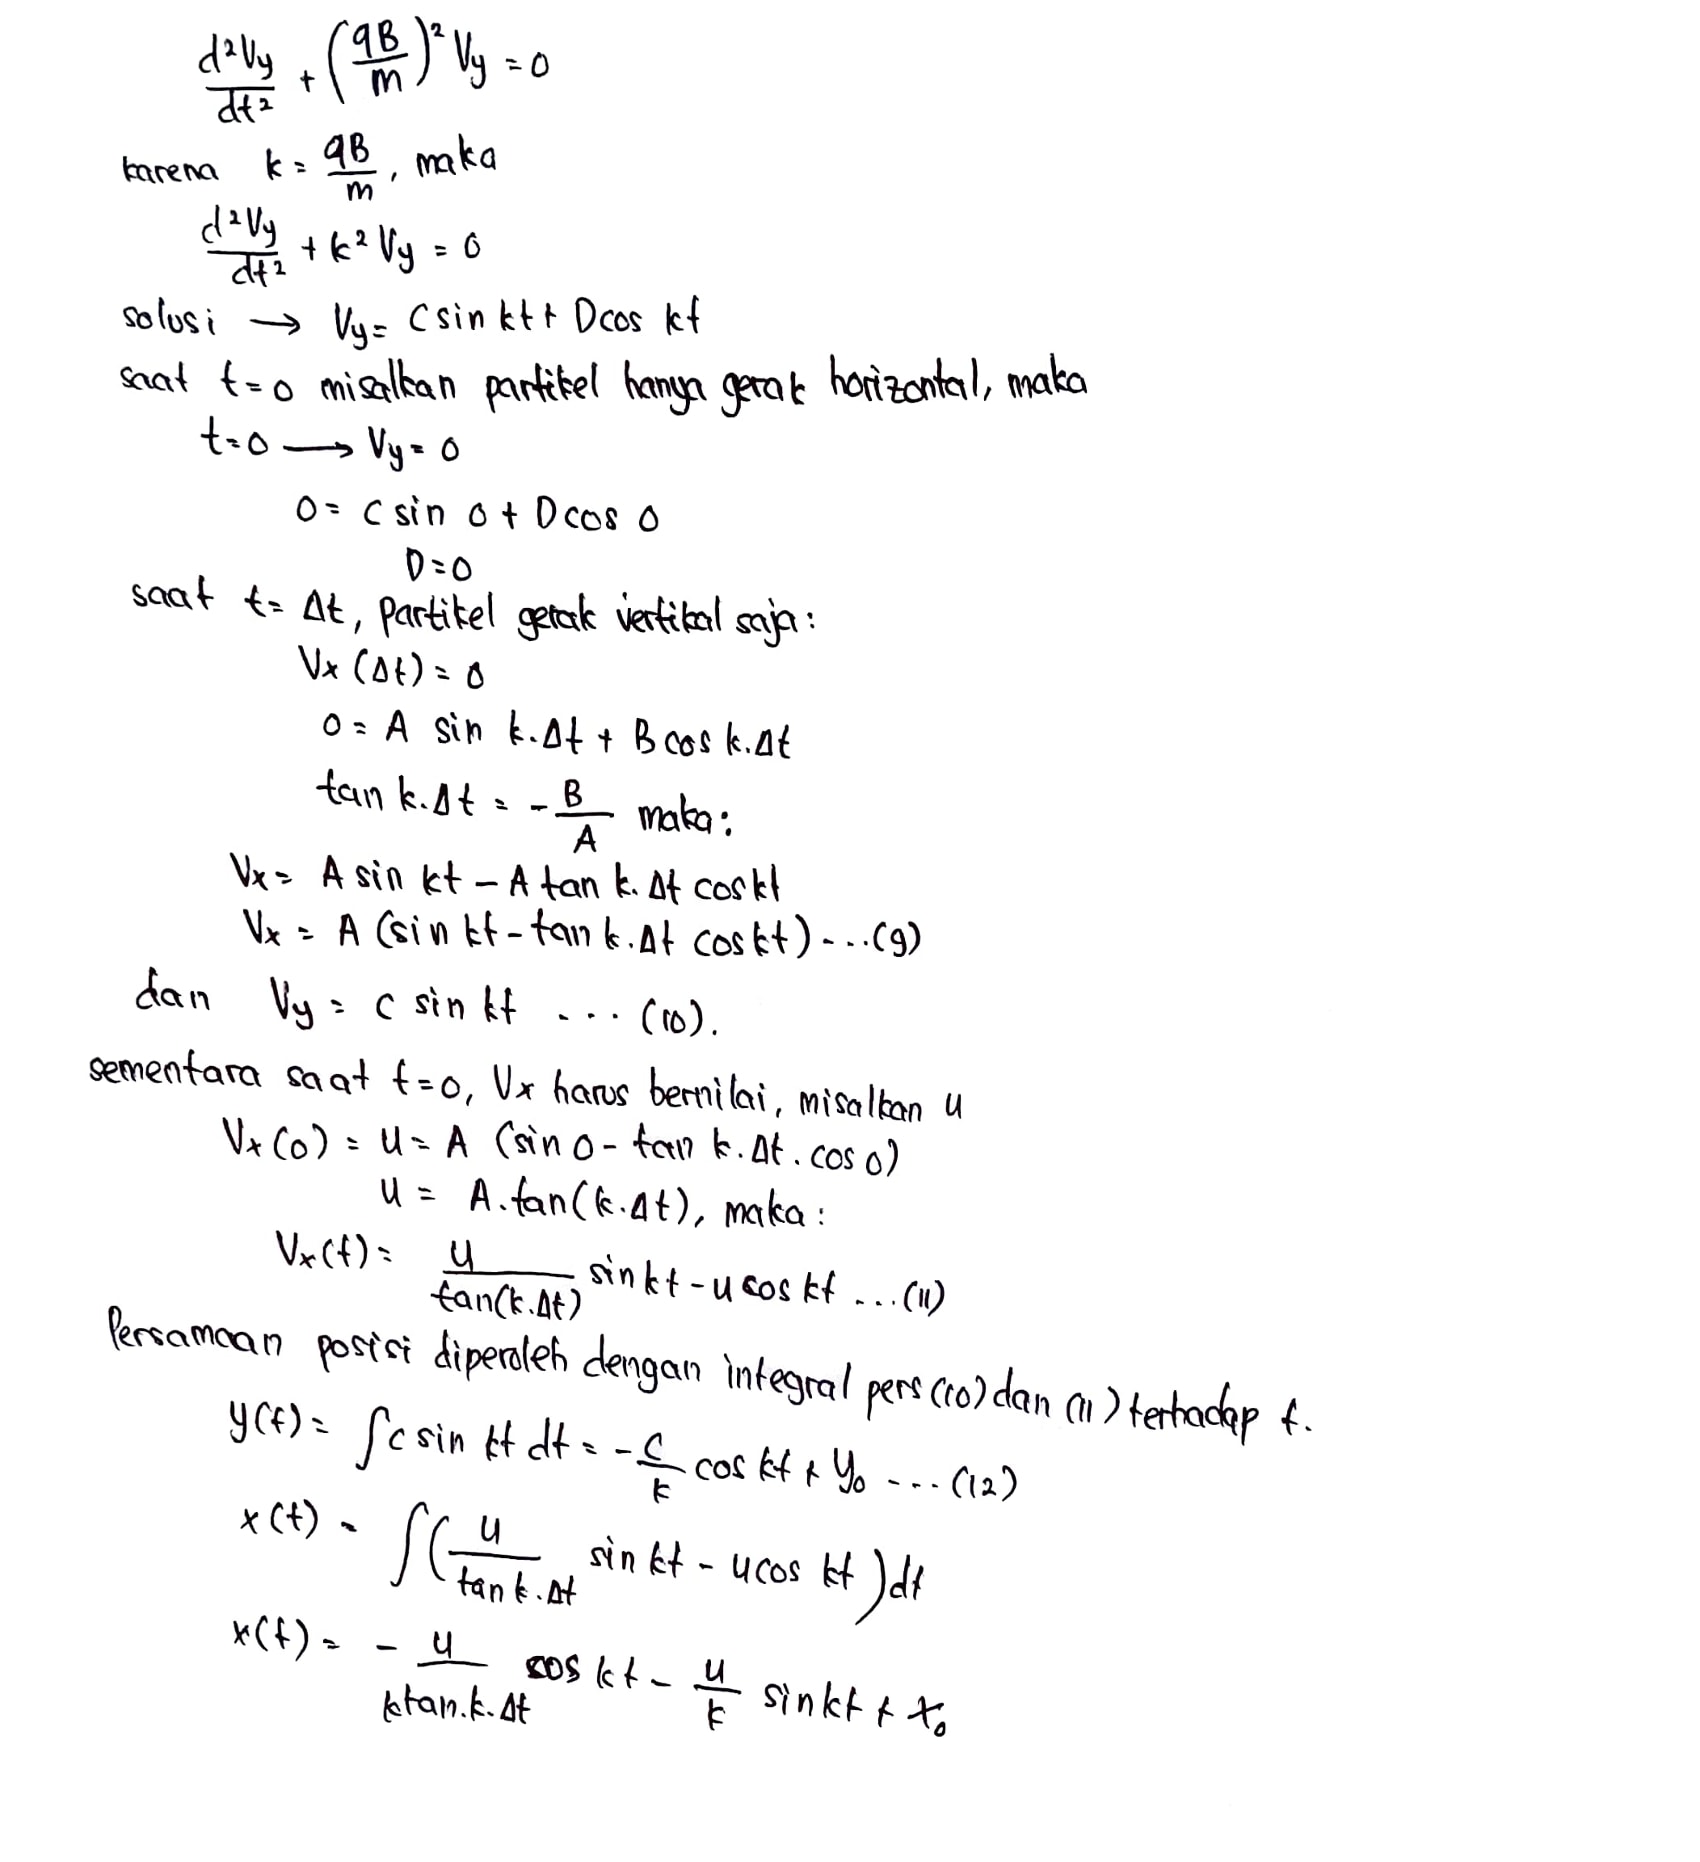 d²Vy/dt² + (qB/m)² Vy = 0
karena k = qB/m, maka
d²Vy/dt² + k² Vy = 0
solusi → Vy = C sin kt + D cos kt
saat t=0 misalkan partikel hanya gerak horizontal, maka
t=0 → Vy = 0
0 = C sin 0 + D cos 0
D=0
saat t = Δt, partikel gerak vertikal saja:
Vx (Δt) = 0
0 = A sin k.Δt + B cos k.Δt
tan k.Δt = - B/A maka:
Vx = A sin kt - A tan k.Δt cos kt
Vx = A (sin kt - tan k.Δt cos kt) ...(9)
dan Vy = C sin kt ... (10).
sementara saat t=0, Vx harus bernilai, misalkan u
Vx (0) = u = A (sin 0 - tan k.Δt. cos 0)
u = A.tan(k.Δt), maka:
Vx(t) = u/tan(k.Δt) sin kt - u cos kt ...(11)
Persamaan posisi diperoleh dengan integral pers (10) dan (11) terhadap t.
y(t) = ∫ c sin kt dt = - c/k cos kt + y₀ ... (12)
x(t) = ∫ (u/tan k.Δt sin kt - u cos kt) dt
x(t) = - u/k tan.k.Δt cos kt - u/k sin kt + x₀